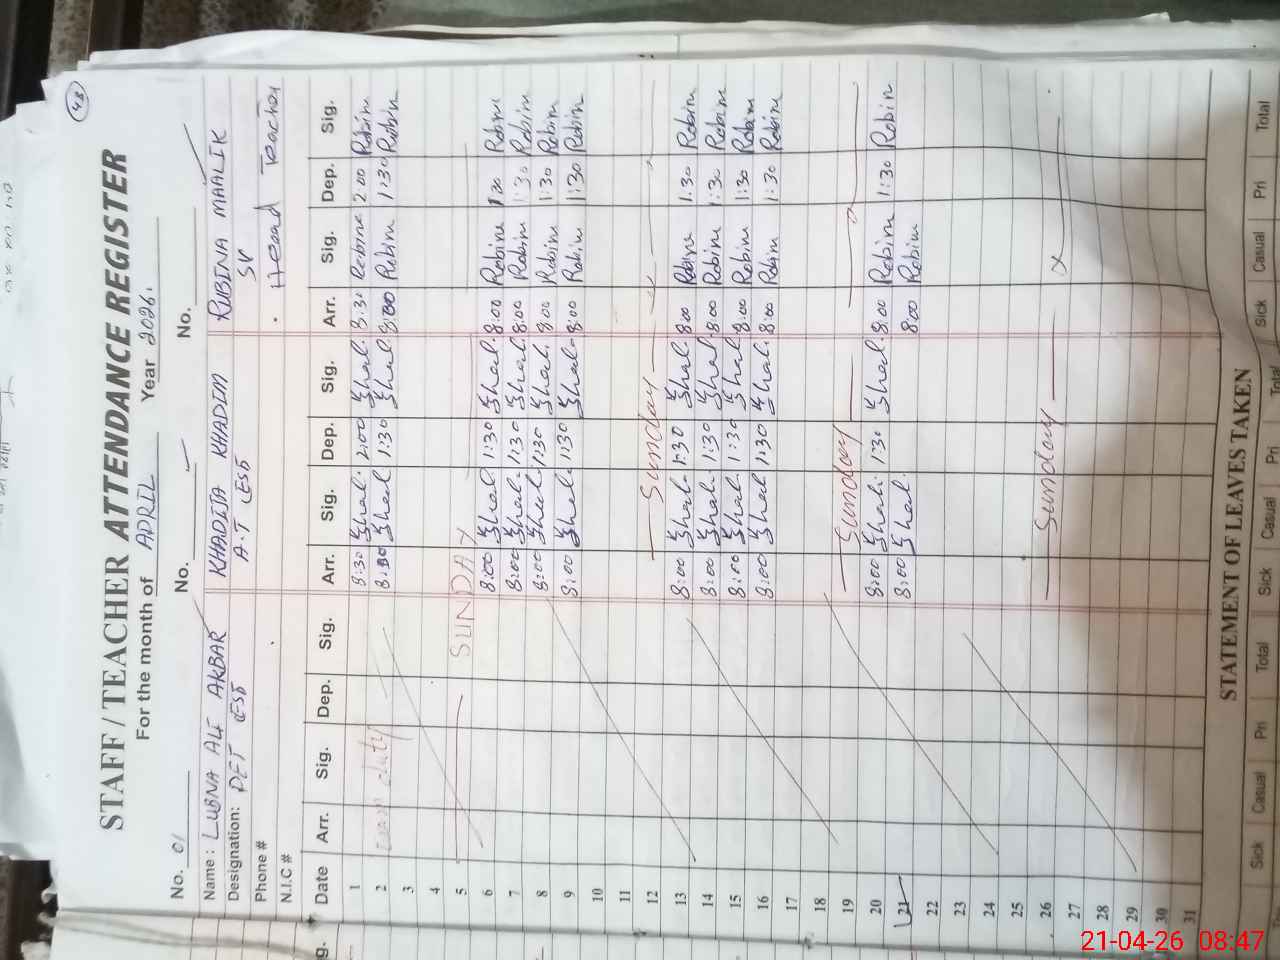 48
STAFF / TEACHER ATTENDANCE REGISTER
For the month of APRIL Year 2026.
No. 01 No. No.
Name : LUBNA ALI AKBAR KHADIJA KHADIM RUBINA MAALIK
Designation: DET ESE A.T ESE SV
Phone # Head Teacher
N.I.C #
Date Arr. Sig. Dep. Sig. Arr. Sig. Dep. Sig. Arr. Sig. Dep. Sig.
1 8:30 2:00 8:30 Robina 2:00 Robina
2 duty 8:00 1:30 8:00 Robina 1:30 Robina
3
4
5 SUNDAY
6 8:00 1:30 8:00 Robina 1:30 Robina
7 8:00 1:30 8:00 Robina 1:30 Robina
8 8:00 1:30 8:00 Robina 1:30 Robina
9 8:00 1:30 8:00 Robina 1:30 Robina
10
11
12 Sunday
13 8:00 1:30 8:00 Robina 1:30 Robina
14 8:00 1:30 8:00 Robina 1:30 Robina
15 8:00 1:30 8:00 Robina 1:30 Robina
16 8:00 1:30 8:00 Robina 1:30 Robina
17
18
19 Sunday
20 8:00 1:30 8:00 Robina 1:30 Robina
21 8:00 8:00 Robina
22
23
24
25
26 Sunday
27
28
29
30
31
STATEMENT OF LEAVES TAKEN
Sick Casual Pri Total Sick Casual Pri Total Sick Casual Pri Total
21-04-26 08:47